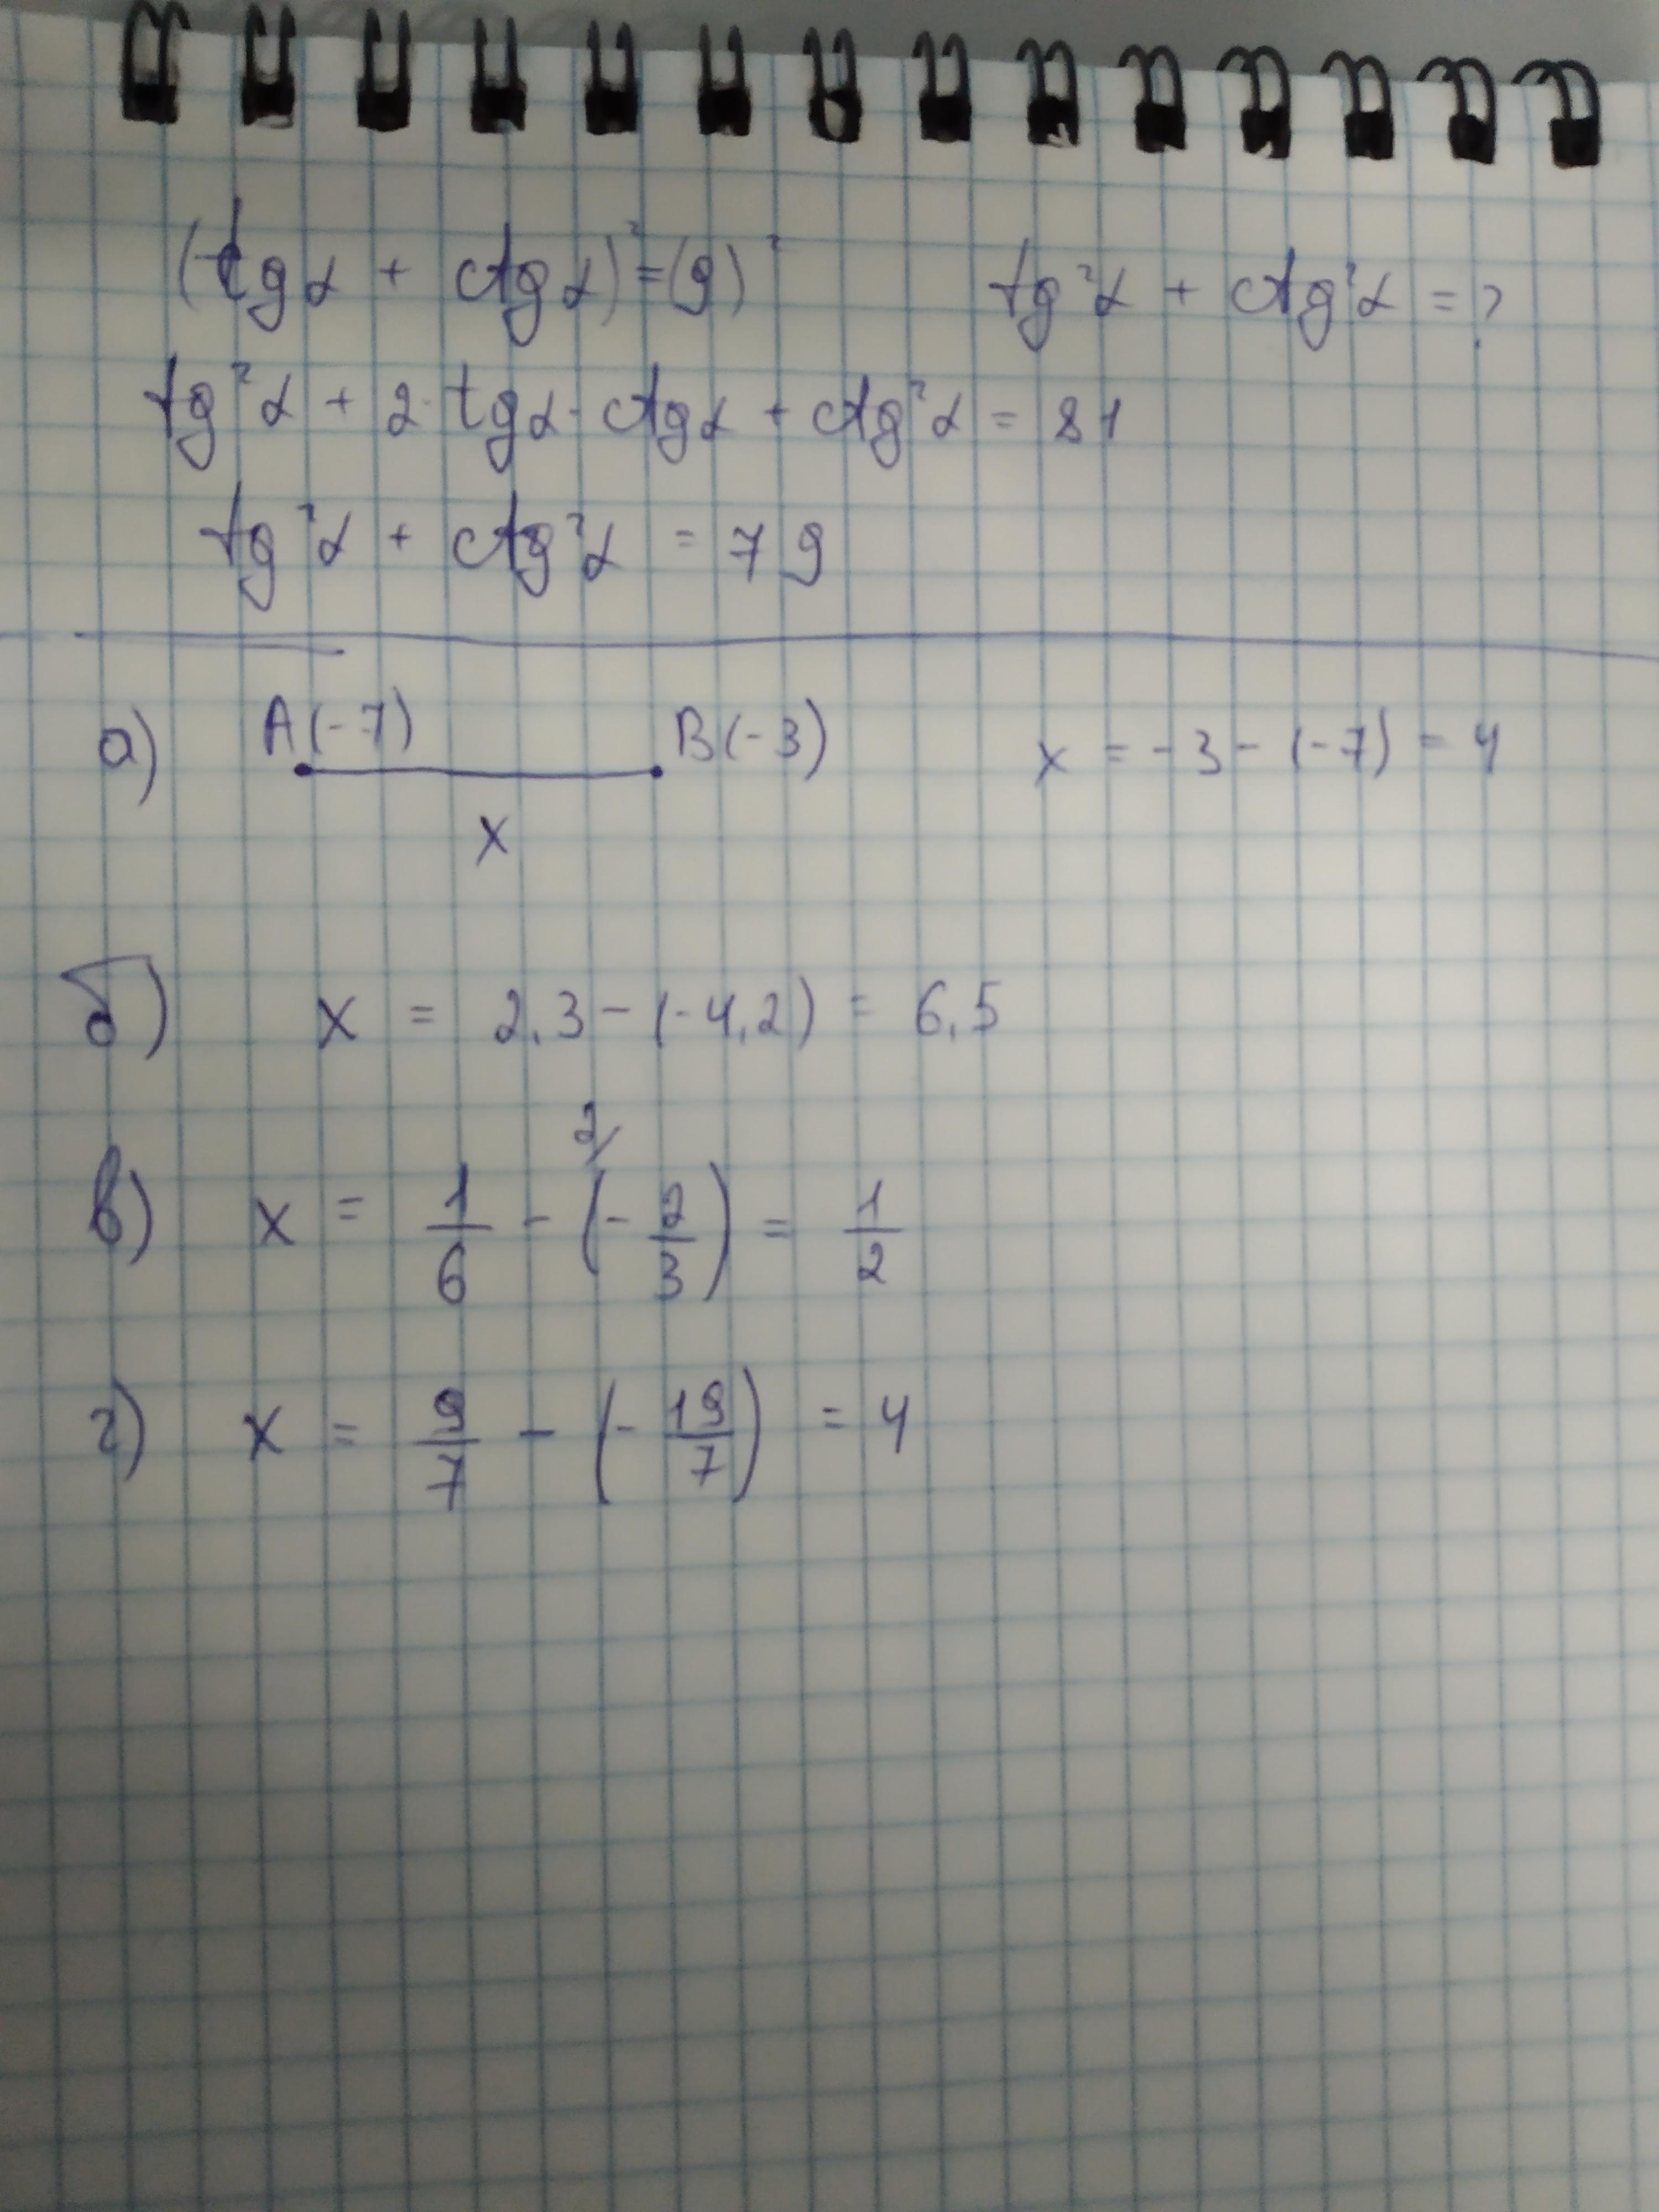 (tg α + ctg α)² = (9)² tg²α + ctg²α = ?
tg²α + 2 · tg α · ctg α + ctg²α = 81
tg²α + ctg²α = 79
а) A(-7) B(-3) x = -3 - (-7) = 4
x
б) x = 2,3 - (-4,2) = 6,5
в) x = 1/6 - ²⁄(-2/3) = 1/2
г) x = 9/7 - (-19/7) = 4